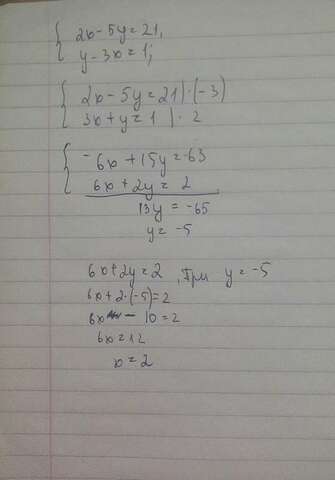 2x-5y=21,
y-3x=1;
2x-5y=21|·(-3)
3x+y=1 |·2
-6x+15y=-63
6x+2y=2
13y=-65
y=-5
6x+2y=2, При y=-5
6x+2·(-5)=2
6x-10=2
6x=12
x=2